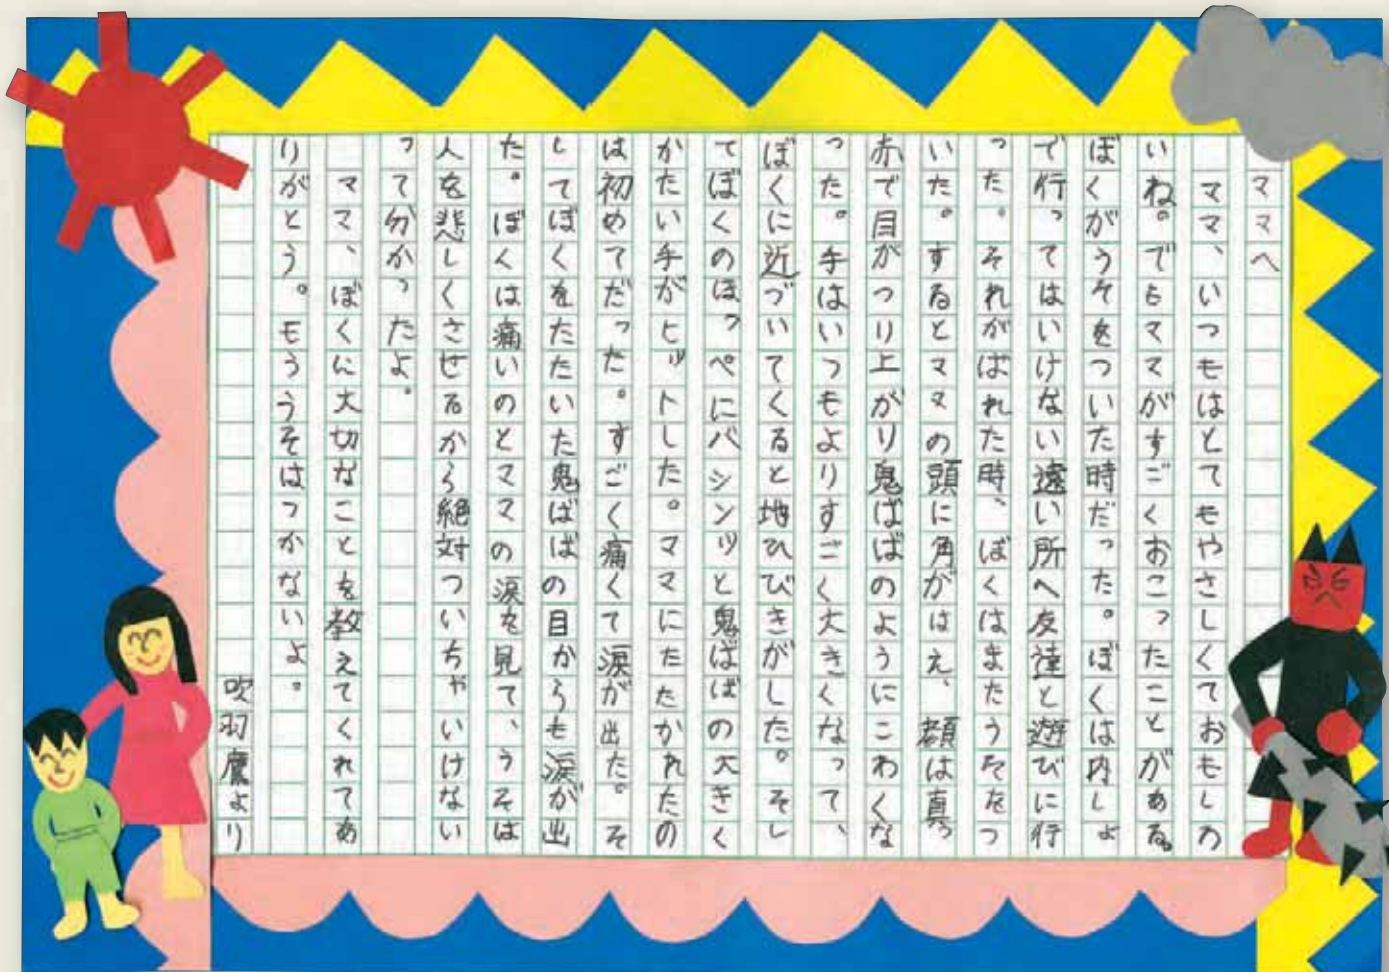 ママへ
ママ、いつもはとてもやさしくておもしろ
いね。でもママがすごくおこったことがある。
ぼくがうそをついた時だった。ぼくは内しょ
で行ってはいけない遠い所へ友達と遊びに行
った。それがばれた時、ぼくはまたうそをつ
いた。するとママの頭に角がはえ、顔は真っ
赤で目がつり上がり鬼ばばのようにこわくな
った。手はいつもよりすごく大きくなって、
ぼくに近づいてくると地ひびきがした。そし
てぼくのほっぺにバシンッと鬼ばばの大きく
かたい手がヒットした。ママにたたかれたの
は初めてだった。すごく痛くて涙が出た。そ
してぼくをたたいた鬼ばばの目からも涙が出
た。ぼくは痛いのとママの涙を見て、うそは
人を悲しくさせるから絶対ついちゃいけない
って分かったよ。
ママ、ぼくに大切なことを教えてくれてあ
りがとう。もううそはつかないよ。
吹羽鷹より